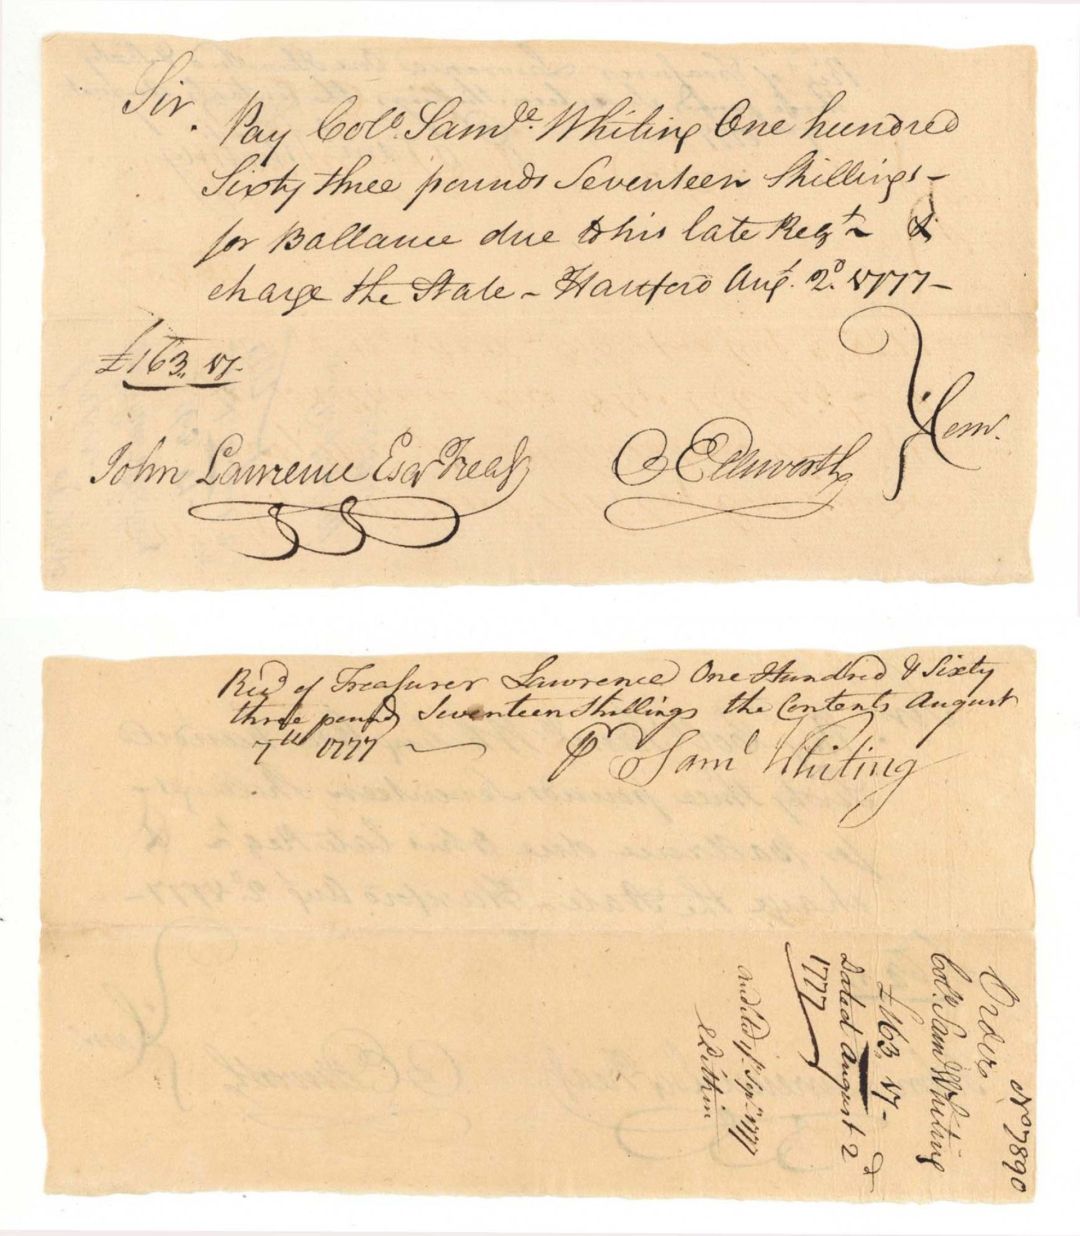 Sir.
Pay Colo. Saml. Whiting One hundred
Sixty three pounds Seventeen Shillings -
for Ballance due to his late Regt. &
charge the State - Hartford Augt. 2d. 1777 -
£163,, 17 -
Com.
John Lawrence Esqr Treasr
O Ellsworth
Recd of Treasurer Lawrence One Hundred & Sixty
three pounds Seventeen Shillings the Contents August
7th 1777
Pr Saml Whiting
No 7890
Order
Colo. Saml Whiting
£163,, 17 -
Dated August 2d
1777